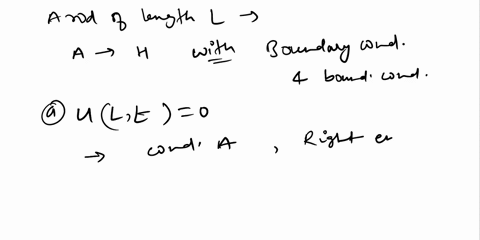 A rod of length L →
A → H with Boundary cond.
& bound. cond.
ⓐ u(L,t)=0
→ cond. A , Right en